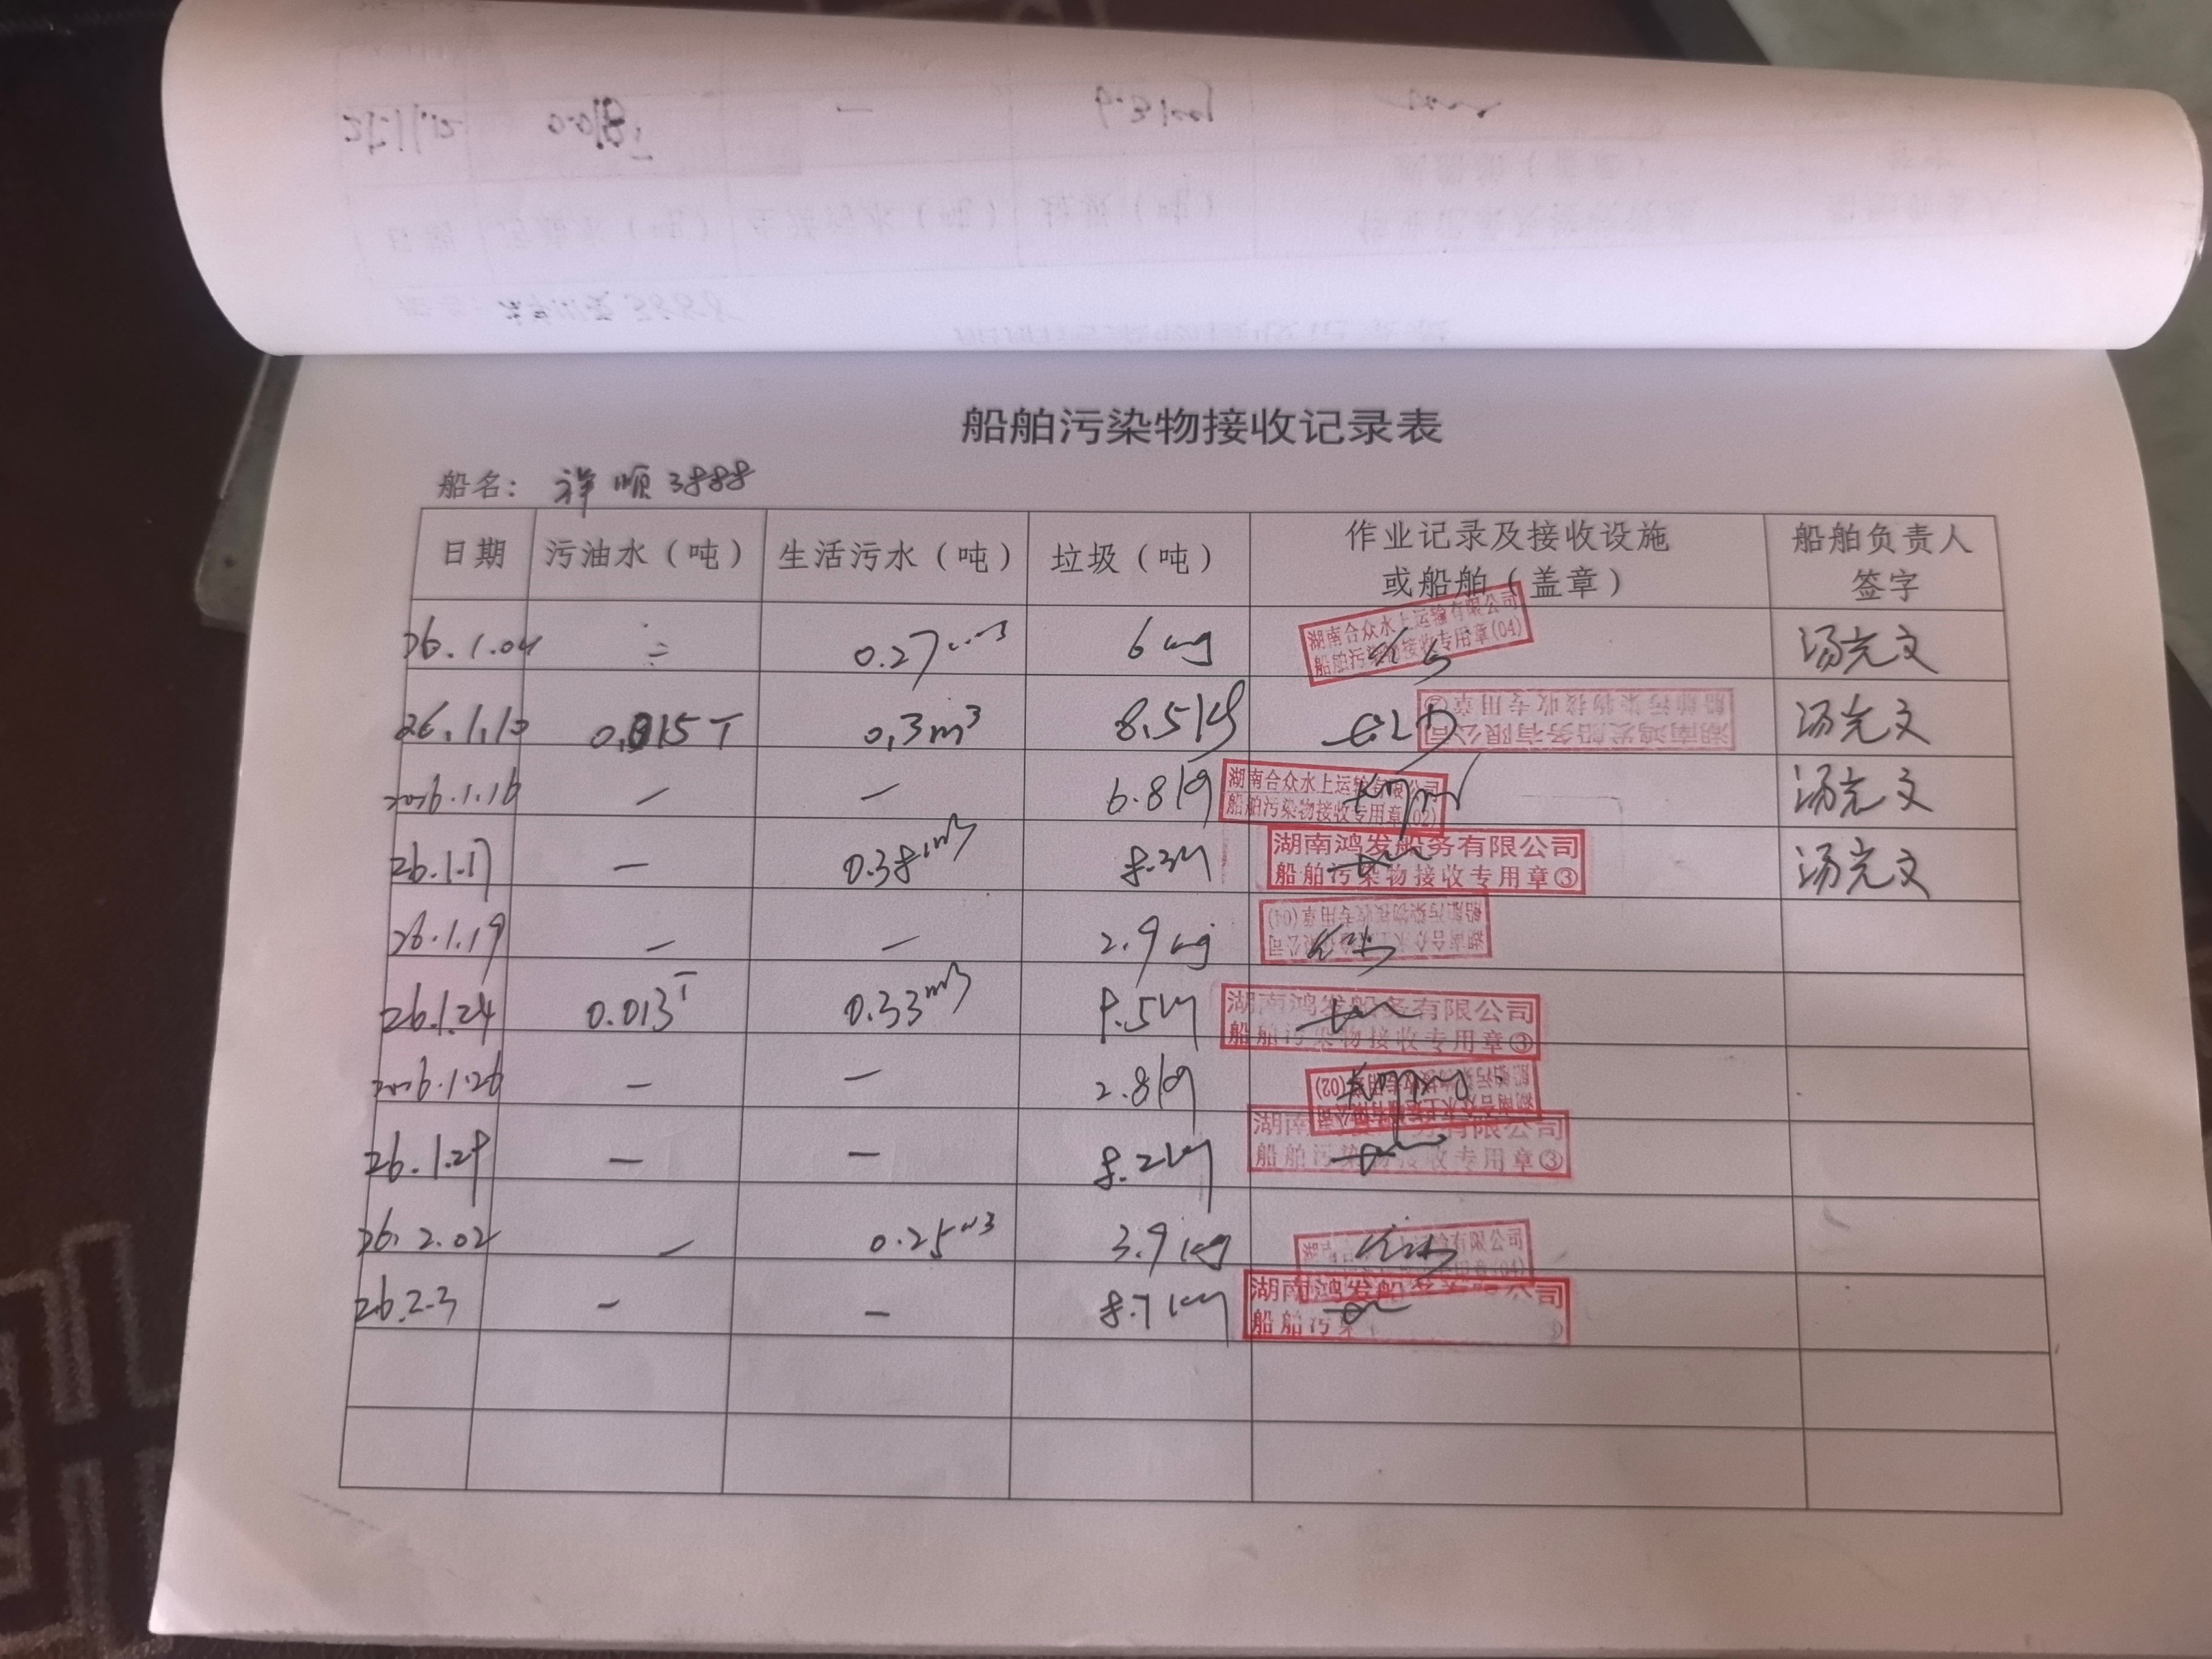 船舶污染物接收记录表
船名：祥顺3888
日期 污油水（吨） 生活污水（吨） 垃圾（吨） 作业记录及接收设施或船舶（盖章） 船舶负责人签字
26.1.04 — 0.27m3 6kg 湖南合众水上运输有限公司 船舶污染物接收专用章(04) 汤完文
26.1.10 0.015T 0.3m³ 8.5kg 湖南鸿发船务有限公司 船舶污染物接收专用章 汤完文
2026.1.16 — — 6.8kg 湖南合众水上运输有限公司 船舶污染物接收专用章(02) 汤完文
26.1.17 — 0.38m3 8.3kg 湖南鸿发船务有限公司 船舶污染物接收专用章③ 汤完文
26.1.19 — — 2.9kg 湖南合众水上运输有限公司 船舶污染物接收专用章(04)
26.1.24 0.013T 0.33m3 9.5kg 湖南鸿发船务有限公司 船舶污染物接收专用章③
2026.1.26 — — 2.8kg 湖南合众水上运输有限公司 船舶污染物接收专用章(02)
26.1.29 — — 8.2kg 湖南鸿发船务有限公司 船舶污染物接收专用章③
26.2.02 — 0.25m3 3.9kg 上运输有限公司 专用章(04)
26.2.3 — — 8.7kg 湖南鸿发船务有限公司 船舶污染